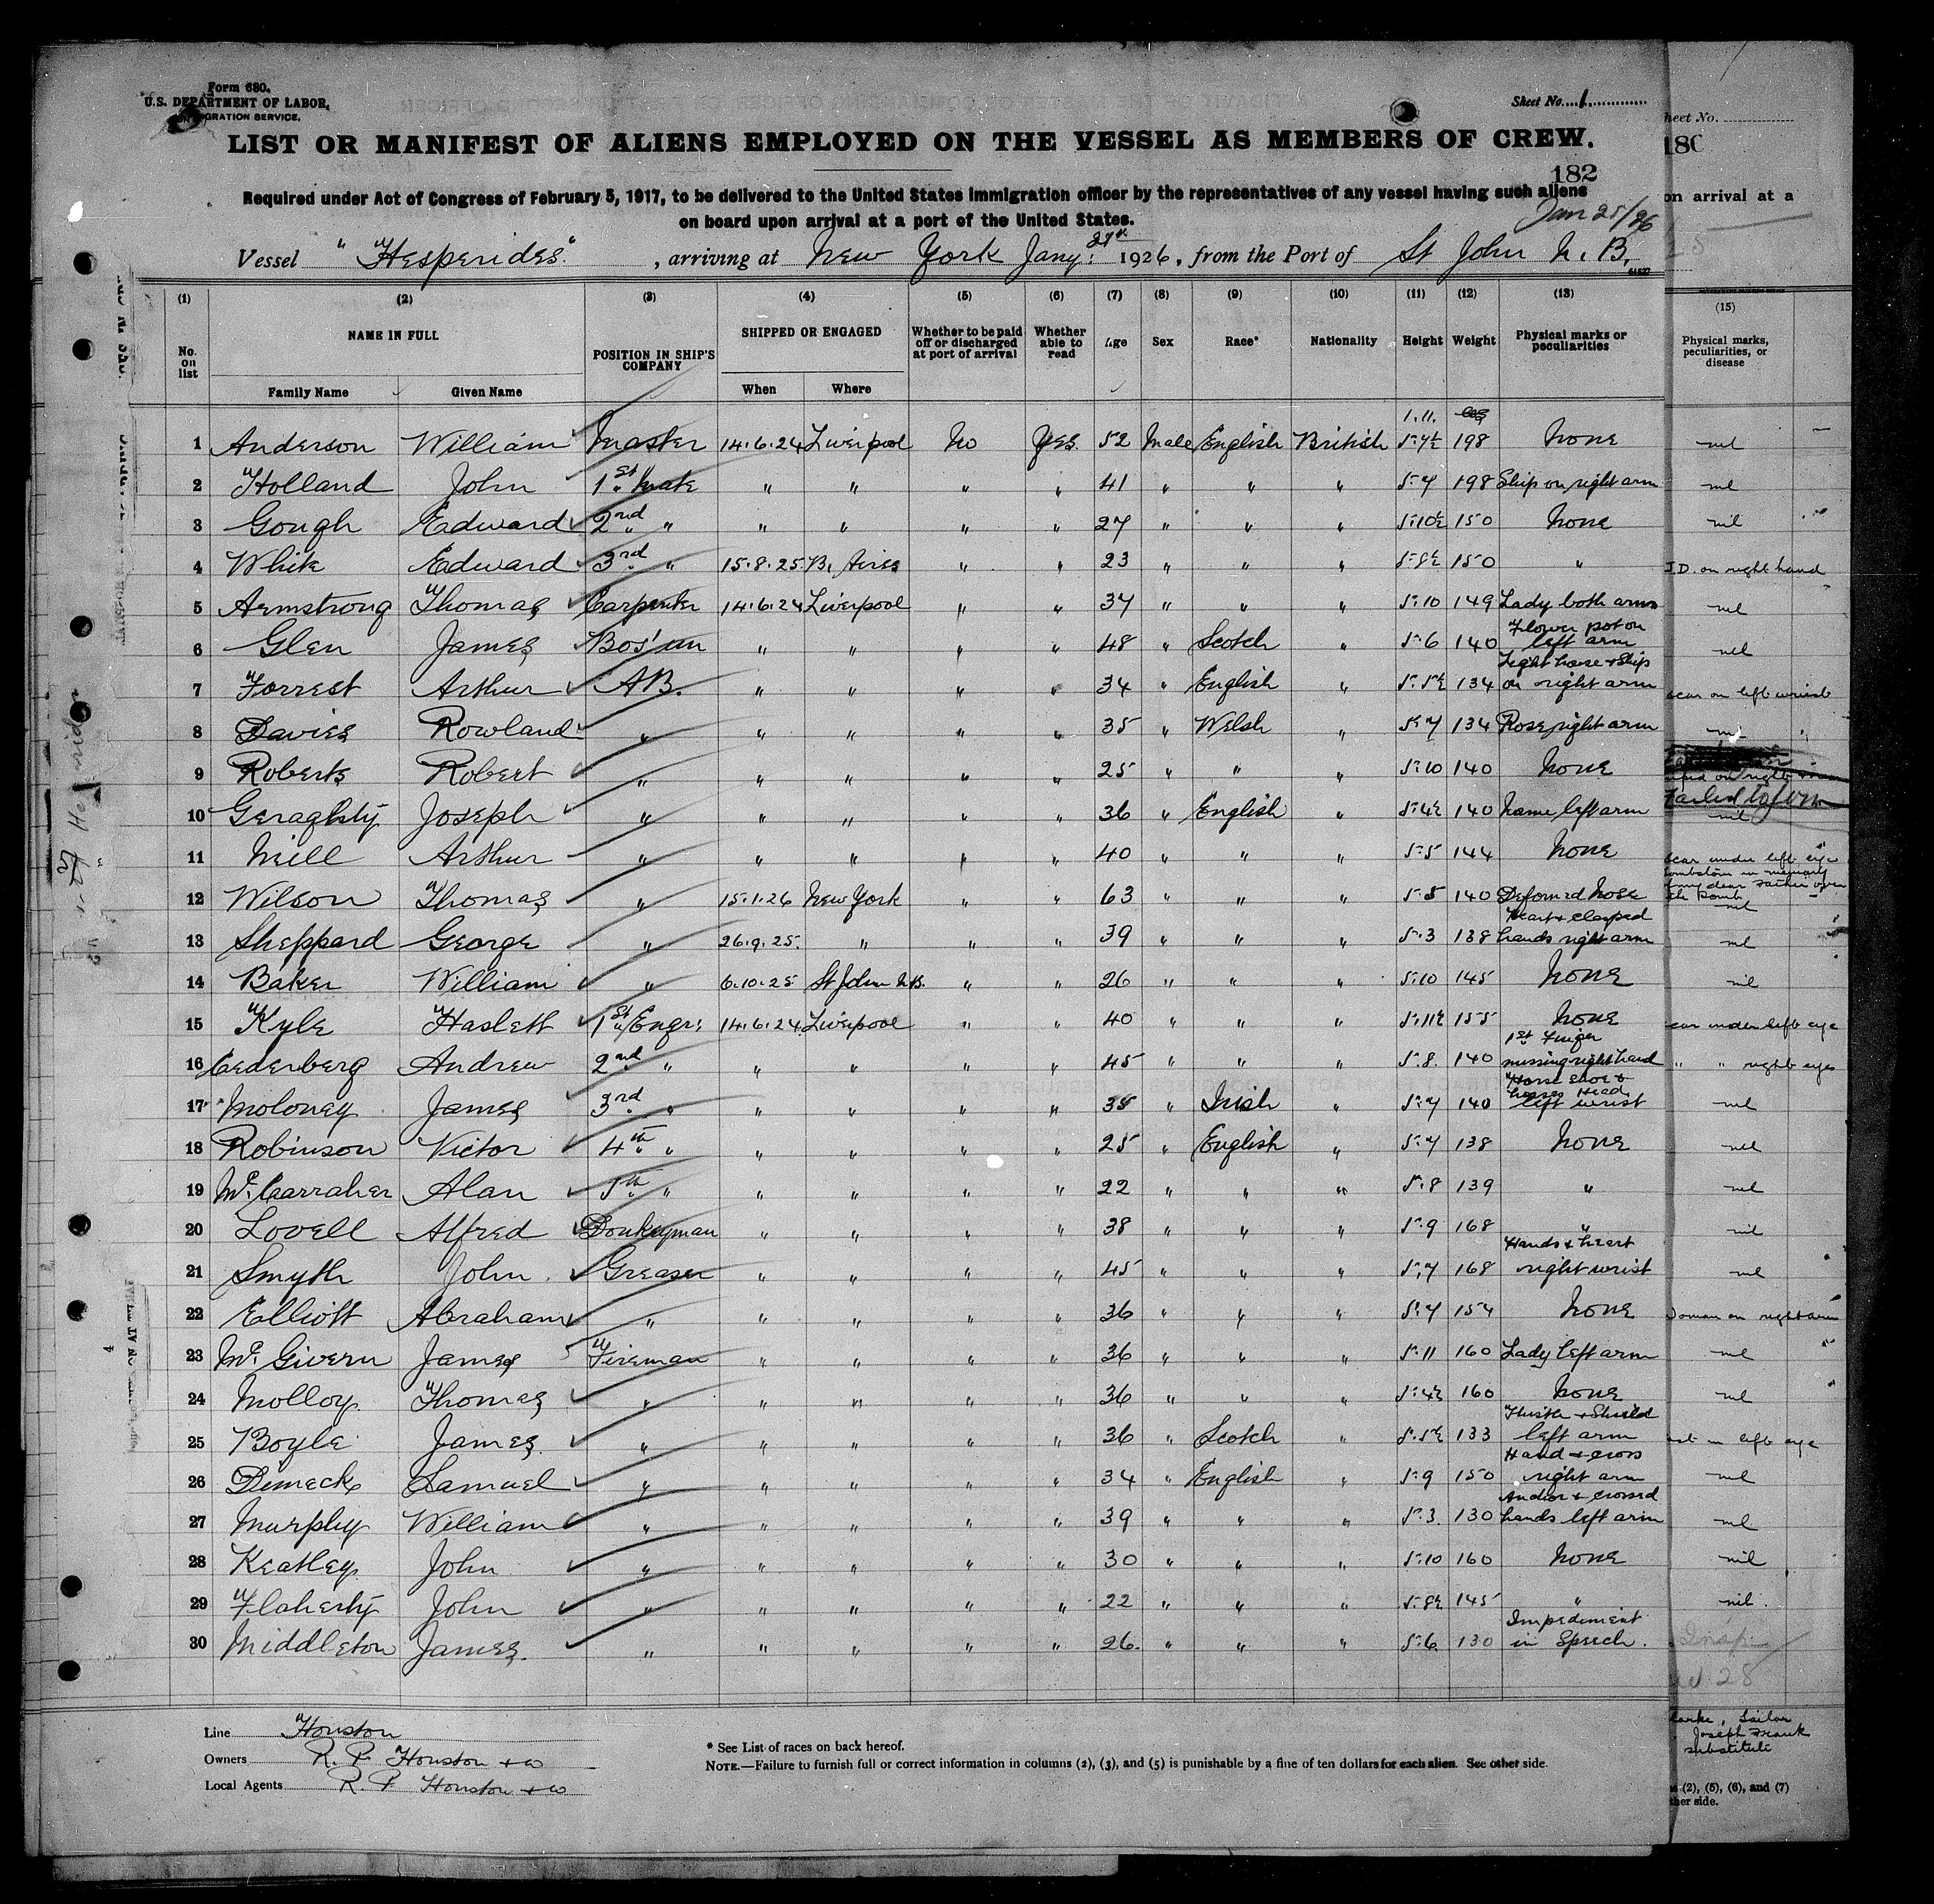 Form 680.
U.S. DEPARTMENT OF LABOR,
IMMIGRATION SERVICE.
Sheet No. 1
LIST OR MANIFEST OF ALIENS EMPLOYED ON THE VESSEL AS MEMBERS OF CREW.
182
Required under Act of Congress of February 5, 1917, to be delivered to the United States immigration officer by the representatives of any vessel having such aliens
on board upon arrival at a port of the United States.
Jan 25/26
Vessel "Hesperides", arriving at New York Jany. 1926, from the Port of St John N. B.
(1) (2) (3) (4) (5) (6) (7) (8) (9) (10) (11) (12) (13)
No. on list NAME IN FULL POSITION IN SHIP'S COMPANY SHIPPED OR ENGAGED Whether to be paid off or discharged at port of arrival Whether able to read Age Sex Race* Nationality Height Weight Physical marks or peculiarities
Family Name Given Name When Where
1 Anderson William Master 14.6.24 Liverpool No Yes. 52 Male English British 5.7½ 198 None
2 Holland John 1st Mate " " " " 41 " " " 5.7 198 Ship on right arm
3 Gough Edward 2nd " " " " " 27 " " " 5.10½ 150 None
4 White Edward 3rd " 15.8.25 B. Aires " " 23 " " " 5.8½ 150 "
5 Armstrong Thomas Carpenter 14.6.24 Liverpool " " 34 " " " 5.10 149 Lady both arms
6 Glen James Bos'un " " " " 48 " Scotch " 5.6 140 Flower pot on left arm
7 Forrest Arthur A B. " " " " 34 " English " 5.5½ 134 Light house & Ship on right arm
8 Davies Rowland " " " " " 35 " Welsh " 5.7 134 Rose right arm
9 Roberts Robert " " " " " 25 " " " 5.10 140 None
10 Geraghty Joseph " " " " " 36 " English " 5.4½ 140 Name left arm
11 Neill Arthur " " " " " 40 " " " 5.5 144 None
12 Wilson Thomas " 15.1.26 New York " " 63 " " " 5.5 140 Deformed Nose
13 Sheppard George " 26.9.25. " " " 39 " " " 5.3 138 Heart & clasped hands right arm
14 Baker William " 6.10.25 St John N.B. " " 26 " " " 5.10 145 None
15 Kyle Haslett 1st Engr. 14.6.24 Liverpool " " 40 " " " 5.11½ 155 None
16 Cederberg Andrew 2nd " " " " " 45 " " " 5.8. 140 1st Finger missing right hand
17 Moloney James 3rd " " " " " 38 " Irish " 5.7 140 Horse Shoe & horses Head left wrist
18 Robinson Victor 4th " " " " " 25 " English " 5.7 138 None
19 McCarraher Alan 5th " " " " " 22 " " " 5.8 139 "
20 Lovell Alfred Donkeyman " " " " 38 " " " 5.9 168 "
21 Smyth John Greaser " " " " 45 " " " 5.7 168 Hands & heart right wrist
22 Elliott Abraham " " " " " 36 " " " 5.7 154 None
23 Mc.Givern James Fireman " " " " 36 " " " 5.11 160 Lady left arm
24 Molloy Thomas " " " " " 36 " " " 5.4½ 160 None
25 Boyle James " " " " " 36 " Scotch " 5.5½ 133 Thistle & Shield left arm
26 Dimeck Samuel " " " " " 34 " English " 5.9 150 Hand & cross right arm
27 Murphy William " " " " " 39 " " " 5.3. 130 Anchor & crossed hands left arm
28 Keatley John " " " " " 30 " " " 5.10 160 None
29 Flaherty John " " " " " 22 " " " 5.8½ 145 "
30 Middleton James. " " " " " 26. " " " 5.6. 130 Impediment in Speech.
Line Houston
Owners R. P. Houston & Co
Local Agents R. P. Houston & Co
* See List of races on back hereof.
NOTE.—Failure to furnish full or correct information in columns (2), (3), and (5) is punishable by a fine of ten dollars for each alien. See other side.
heet No.
180
on arrival at a
(15)
Physical marks, peculiarities, or disease
nil
nil
nil
J.D. on right hand
nil
nil
scar on left wrist
nil
Failed to join
nil
scar under left eye
nil
nil
nil
scar under left eye
" " right eye
nil
nil
nil
nil
nil
Woman on right arm
nil
nil
left eye
nil
nil
nil
nil.
28
Sailor
Joseph Frank
substitute
(2), (5), (6), and (7)
ther side.